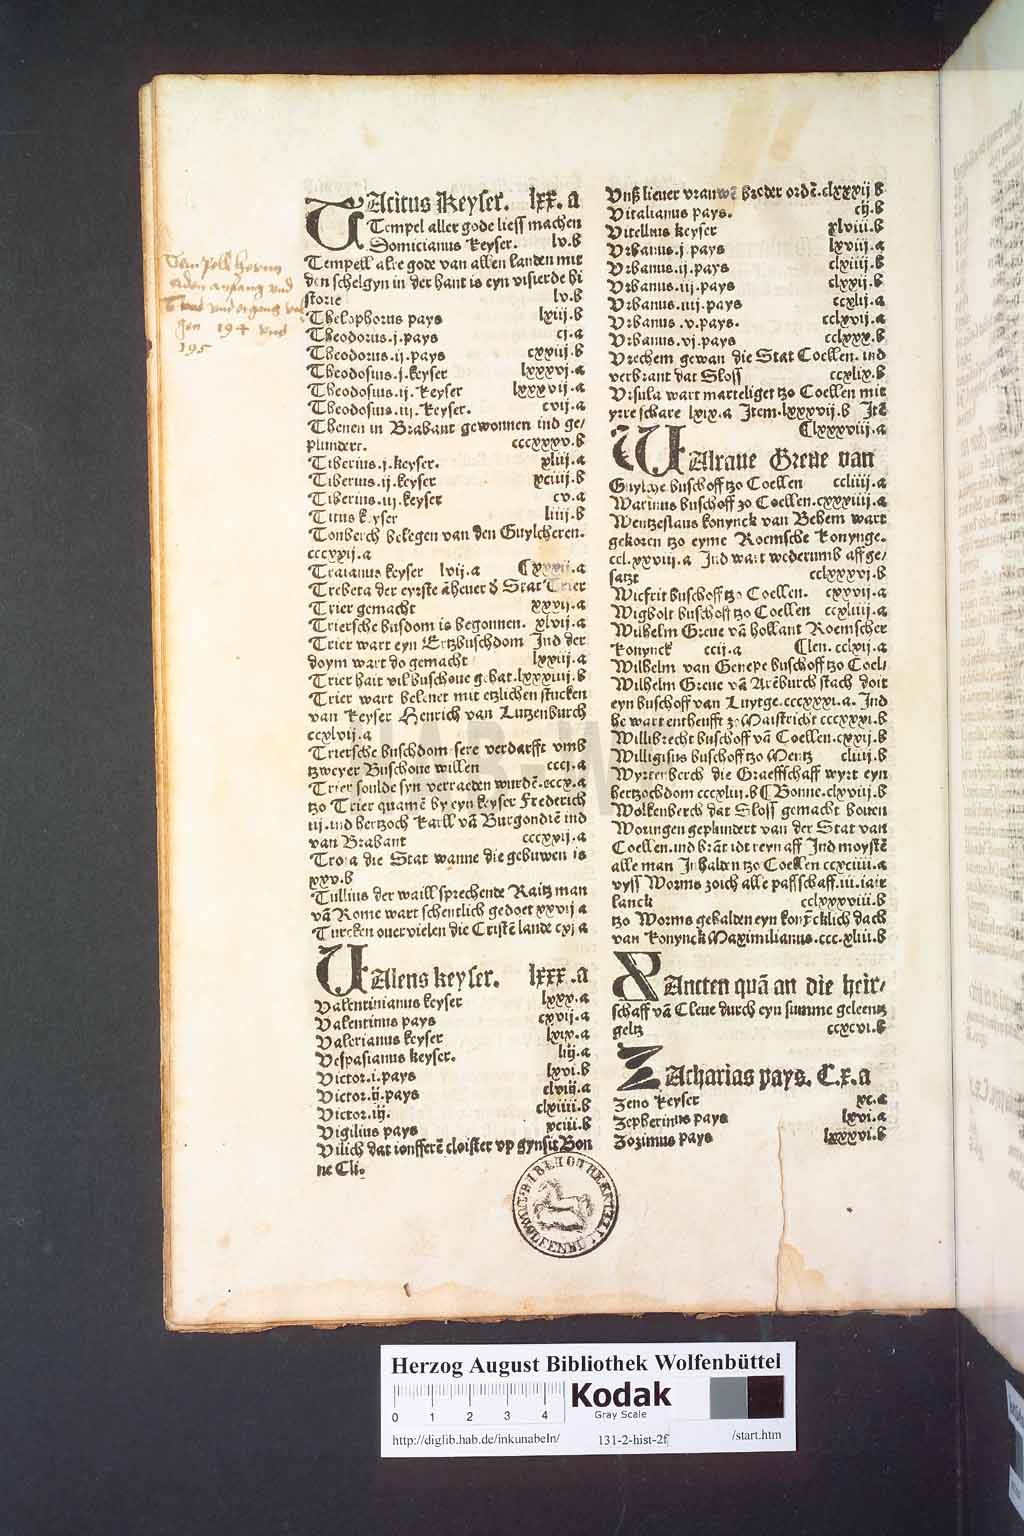 TAcitus Keyser. lxx.a
Tempel aller gode liess machen
Domicianus keyser. lv.b
Tempell alre gode van allen landen mit
den schelgyn in der hant is eyn visierde hi
storie lv.b
Thelophorus pays lxiij.b
Theodorus.j.pays cj.a
Theodorus.ij.pays cxxiij.b
Theodosius.j.keyser lxxxvj.a
Theodosius.ij.keyser lxxxvij.a
Theodosius.iij.keyser. cvij.a
Thenen in Brabant gewonnen ind ge/
plundert. cccxxxv.b
Tiberius.j.keyser. xliij.a
Tiberius.ij.keyser xciiij.b
Tiberius.iij.keyser cv.a
Titus keyser liiij.b
Tonberch belegen van den Guylcheren.
cccxxij.a
Traianus keyser lvij.a
Trebeta der eyrste āheuer d' Stat Trier
Trier gemacht xxvij.a
Triersche busdom is begonnen. xlvij.a
Trier wart eyn Ertzbuschdom Ind der
doym wart do gemacht lxxiij.a
Trier hait vil buschoue gehat.lxxxiiij.b
Trier wart belenet mit etzlichen stucken
van keyser Henrich van Lutzenburch
ccxlvij.a
Triersche buschdom sere verdarfft vmb
tzweyer Buschoue willen cccj.a
Trier soulde syn verraeden wurdē.cccx.a
tzo Trier quamē by eyn keyser Frederich
iij.ind hertzoch Karll vā Burgondiē ind
van Brabant cccxvij.a
Troia die Stat wanne die gebuwen is
xxv.b
Tullius der waill sprechende Raitz man
vā Rome wart schentlich gedoet xxvij a
Turcken ouervielen die Cristē lande cxj a
VAlens keyser. lxxx.a
Valentinianus keyser lxxx.a
Valentinus pays cxvij.a
Valerianus keyser lxix.a
Vespasianus keyser. liij.a
Victor.i.pays lxvi.b
Victor.ij.pays clviij.a
Victor.iij. clxiiii.b
Vigilius pays xciii.b
Vilich dat ionfferē cloister vp gynsit Bon
ne Cli.
Vnß lieuer vrauwē broder ordē.clxxxij b
Vitalianus pays. cij.b
Vitellius keyser xlviii.b
Vrbanus.j.pays lxviij.a
Vrbanus.ij.pays clxiiij.b
Vrbanus.iij.pays clxxij.b
Vrbanus.iiij.pays ccxlij.a
Vrbanus.v.pays. cclxvij.a
Vrbanus.vj.pays cclxxx.b
Vrechem gewan die Stat Coellen.ind
verbrant dat Sloss ccxlix.b
Vrsula wart marteliget tzo Coellen mit
yrre schare lxix.a Item.lxxxvij.b Itē
Clxxxviij.a
WAlraue Greue van
Guylche buschoff tzo Coellen ccliiij.a
Warinus buschoff zo Coellen.cxxxiiij.a
Wentzeslaus konynck van Behem wart
gekoren tzo eyme Roemsche konynge.
ccl.xxviij.a Ind wart wederumb aff ge/
satzt cclxxxvj.b
Wicfrit buschoff tzo Coellen. cxxvij.a
Wigbolt buschoff tzo Coellen ccxliiij.a
Wilhelm Greue vā hollant Roemscher
konynck ccij.a Clen.cclxij.a
Wilhelm van Genepe buschoff tzo Coel/
Wilhelm Greue vā Arēburch stach doit
eyn buschoff van Luytge.cccxxxj.a. Ind
he wart entheufft zo Maistricht cccxxxj.b
Willibrecht buschoff vā Coellen.cxxij.b
Willigisus buschoff tzo Mentz cliiij.b
Wyrtenberch die Graeffschaff wyrt eyn
hertzochdom cccxliij.b C Bonne.clxviij.b
Wolkenberch dat Sloss gemacht bouen
Woringen geplundert van der Stat van
Coellen.ind brāt idt reyn aff Ind moystē
alle man Inhalden tzo Coellen ccxciiii.a
vyss Worms zoich alle pafschaff.iii.iair
lanck cclxxxviii.b
tzo Worms gehalden eyn konȳcklich dach
van konynck Maximilianus.ccc.xliii.b
XAncten quā an die heir/
schaff vā Cleue durch eyn summe geleentz
geltz ccxcvi.b
ZAcharias pays. C.x.a
Zeno keyser xc.a
Zepherinus pays lxvi.a
Zozimus pays lxxxvi.b
194 vnd
195
Herzog August Bibliothek Wolfenbüttel
0 1 2 3 4
Kodak
Gray Scale
http://diglib.hab.de/inkunabeln/ 131-2-hist-2f /start.htm